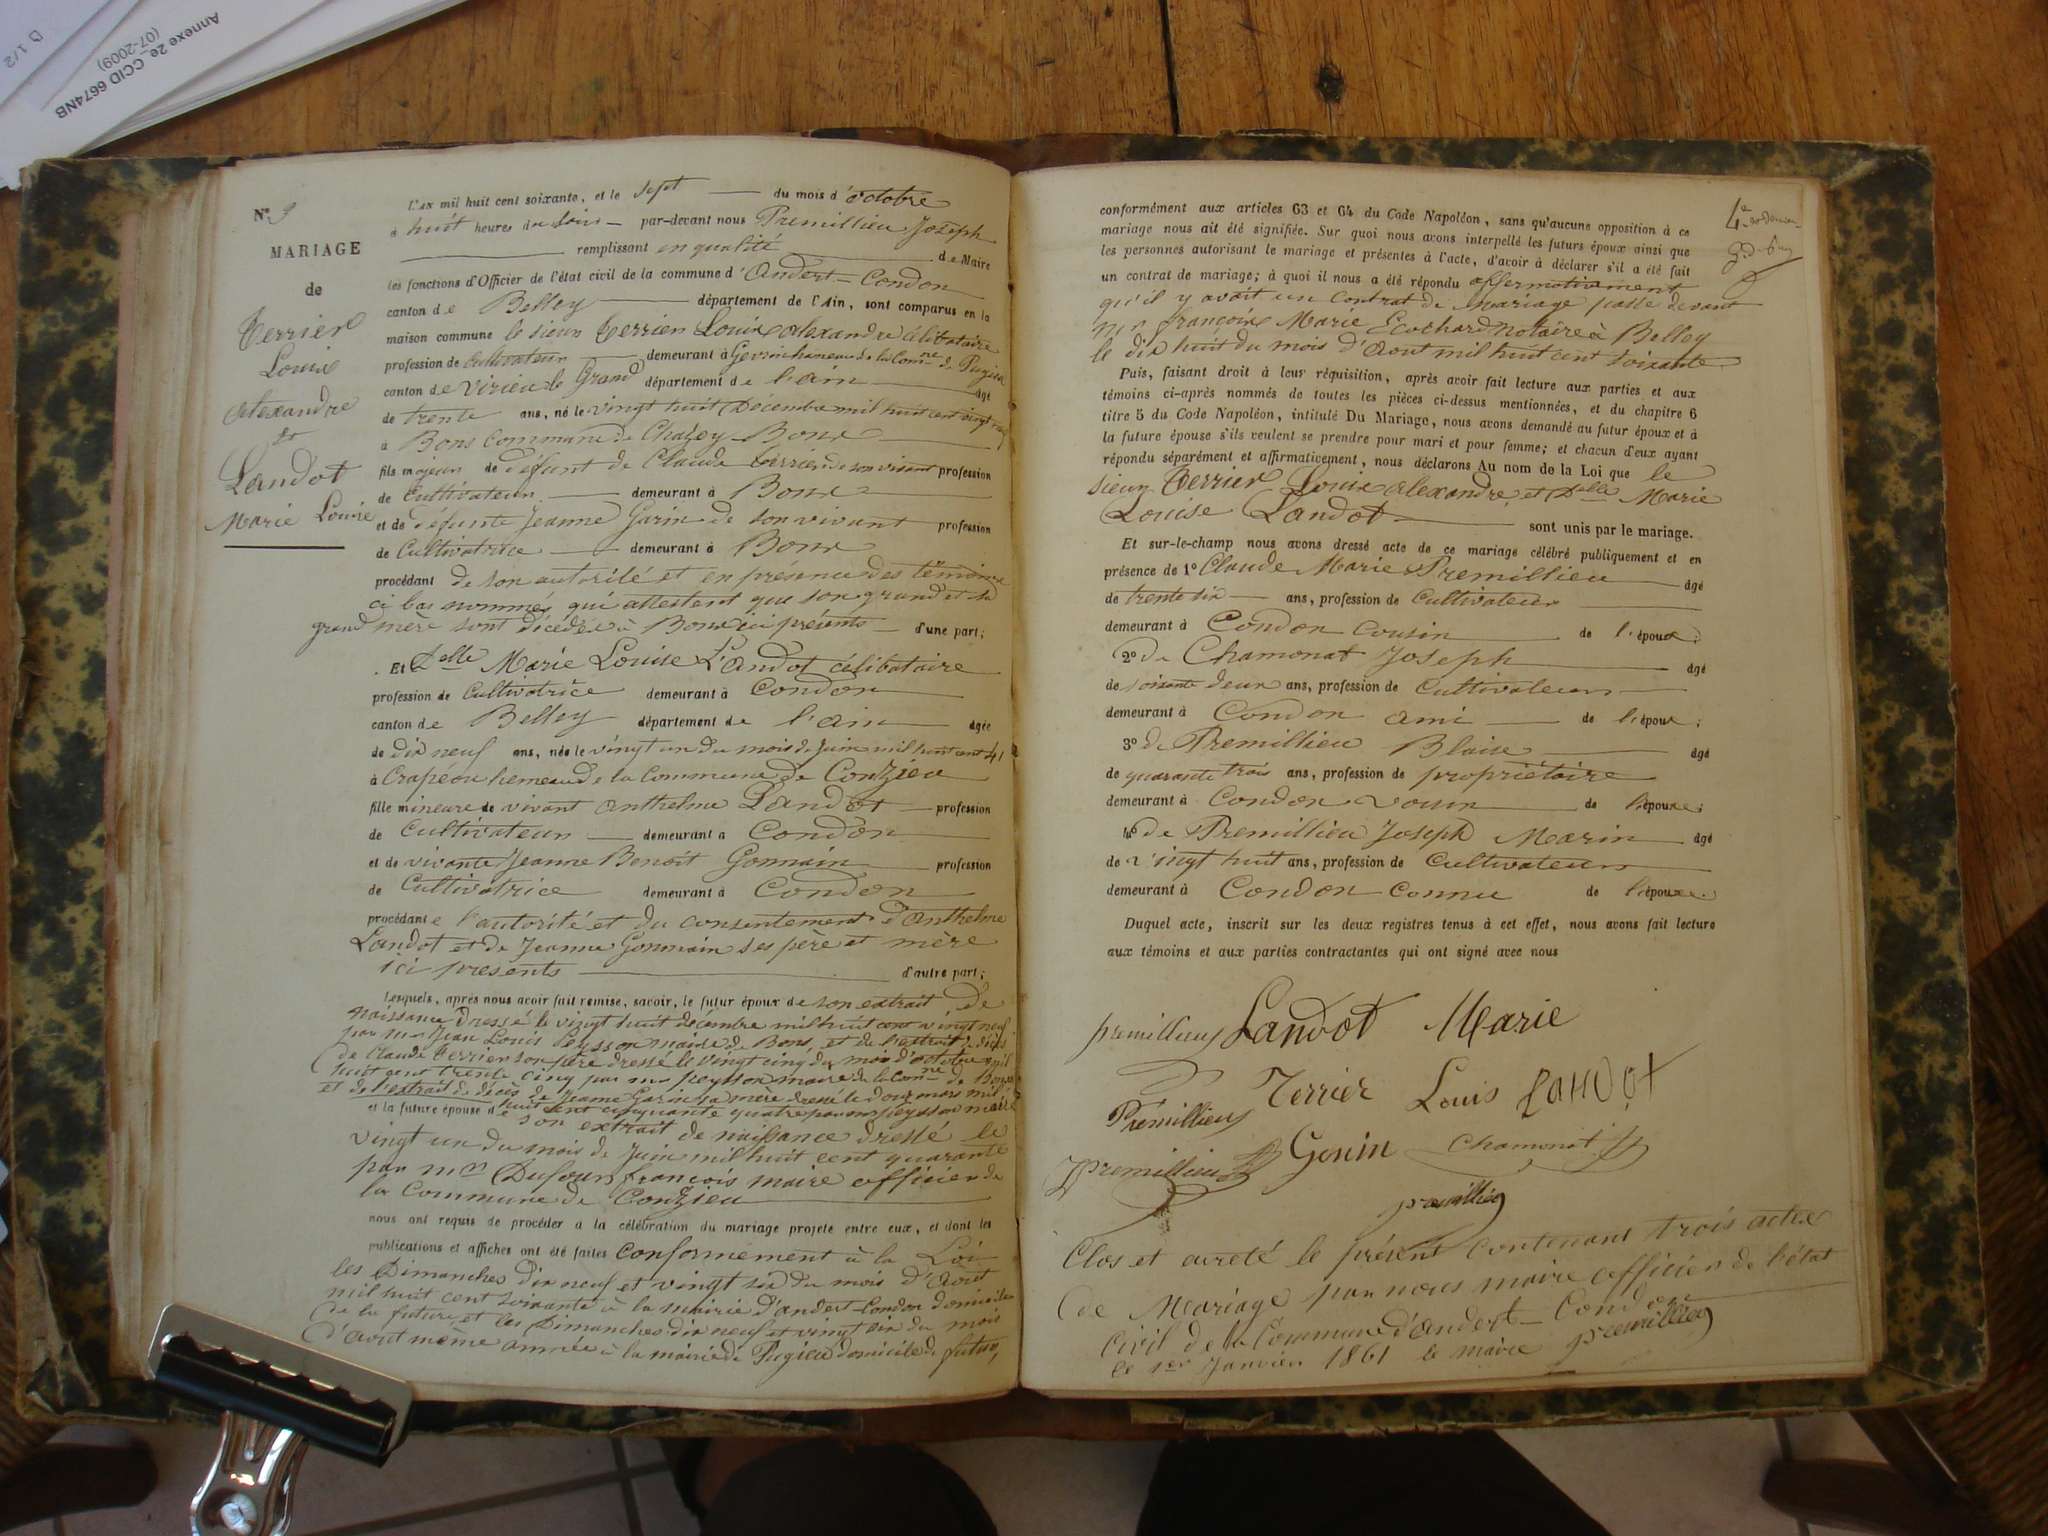 Annexe 2e_CCID 6674NB
(07-2009)
D 1/2
N° 9
MARIAGE
de
Terrier
Louis
alexandre
et
Landot
Marie Louise
L'an mil huit cent soixante, et le sept du mois d'octobre
à huit heures du soir par-devant nous Premillieu Joseph
remplissant en qualité de Maire
les fonctions d'Officier de l'état civil de la commune d'Andert-Condon
canton de Belley département de l'Ain, sont comparus en la
maison commune le sieur Terrier Louis alexandre célibataire
profession de Cultivateur demeurant à hameau de la Comne de Pugieu
canton de Virieu le Grand département de l'ain âgé
de trente ans, né le vingt huit Décembre mil huit cent vingt neuf
à Bons Commune de Chazey-Bons
fils majeur de défunt de Claude Terrier de son vivant profession
de Cultivateur demeurant à Bons
et de défunte Jeanne Garin de son vivant profession
de Cultivatrice demeurant à Bons
procédant de son autorité et en présence des témoins
ci bas nommés qui attestent que son grand et sa
grand mère sont décédés à Bons ici présents d'une part;
Et Delle Marie Louise Landot célibataire
profession de Cultivatrice demeurant à Condon
canton de Belley département de l'ain âgée
de dix neuf ans, née le vingt un du mois de Juin mil huit cent 41
à Crapéou hameau de la Commune de Conzieu
fille mineure de vivant Anthelme Landot profession
de Cultivateur demeurant à Condon
et de vivante Jeanne Benoit Gonnain profession
de Cultivatrice demeurant à Condon
procédant e l'autorité et du consentement d'Anthelme
Landot et de Jeanne Gonnain ses père et mère
ici présents d'autre part;
Lesquels, après nous avoir fait remise, savoir, le futur époux de son extrait de
naissance dressé le vingt huit décembre mil huit cent vingt neuf
par mr Jean Louis Peysson maire de Bons, et de l'extrait de décès
de Claude Terrier son père dressé le vingt cinq du mois d'octobre mil
huit cent trente cinq par mr peysson maire de la Comne de Bons
et de l'extrait de décès de Jeanne Garin sa mère dressé le mars mil
huit cent cinquante quatre par mr peysson maire
et la future épouse d son extrait de naissance dressé le
vingt un du mois de Juin mil huit cent quarante
par mr Dufour françois maire officier de
la Commune de Conzieu
nous ont requis de procéder à la célébration du mariage projeté entre eux, et dont les
publications et affiches ont été faites conformément à la Loi
les Dimanches dix neuf et vingt six du mois d'Août
mil huit cent soixante à la mairie d'andert-Condon domicile
de la future et les Dimanches dix neuf et vingt six du mois
d'août même année à la mairie de Pugieu domicile du futur,
conformément aux articles 63 et 64 du Code Napoléon, sans qu'aucune opposition à ce
mariage nous ait été signifiée. Sur quoi nous avons interpellé les futurs époux ainsi que
les personnes autorisant le mariage et présentes à l'acte, d'avoir à déclarer s'il a été fait
un contrat de mariage; à quoi il nous a été répondu affermativement
qu'il y avait un Contrat de Mariage passé devant
Mr françois Marie Ecochard Notaire à Belley
le dix huit du mois d'Aout mil huit cent soixante
Puis, faisant droit à leur réquisition, après avoir fait lecture aux parties et aux
témoins ci-après nommés de toutes les pièces ci-dessus mentionnées, et du chapitre 6
titre 5 du Code Napoléon, intitulé Du Mariage, nous avons demandé au futur époux et à
la future épouse s'ils veulent se prendre pour mari et pour femme; et chacun d'eux ayant
répondu séparément et affirmativement, nous déclarons Au nom de la Loi que le
sieur Terrier Louis alexandre et Delle Marie
Louise Landot sont unis par le mariage.
Et sur-le-champ nous avons dressé acte de ce mariage célébré publiquement et en
présence de 1° Claude Marie Premillieu âgé
de trente six ans, profession de Cultivateur
demeurant à Condon Cousin de l'époux;
2° de Chamonat Joseph âgé
de soixante deux ans, profession de Cultivateur
demeurant à Condon ami de l'époux;
3° de Premillieu Blaise âgé
de quarante trois ans, profession de propriétaire
demeurant à Condon voisin de l'épouse;
4° de Premillieu Joseph Marin âgé
de vingt huit ans, profession de Cultivateur
demeurant à Condon Connu de l'épouse.
Duquel acte, inscrit sur les deux registres tenus à cet effet, nous avons fait lecture
aux témoins et aux parties contractantes qui ont signé avec nous
premillieu Landot Marie
Terrier Louis LANDOT
Prémillieu
Premillieu B Gonin Chamonat J
premillieu
Clos et areté le présent contenant trois actes
de Mariage par nous maire officier de l'état
civil de la Commune d'andert-Condon
le 1er Janvier 1861 le maire premillieu